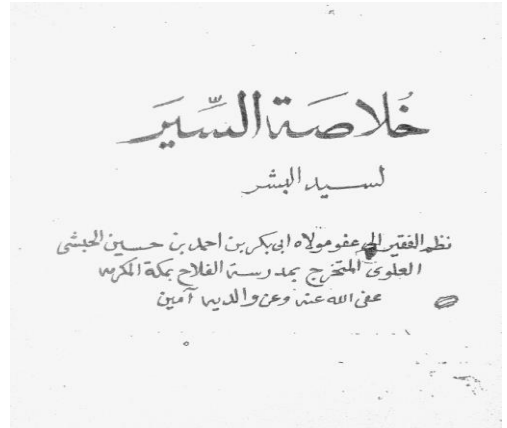 خُلاصَة السِّيَر
لسيد البشر
نظم الفقير إلى عفو مولاه ابى بكر بن احمد بن حسين الحبشى
العلوى المتخرج بمدرسة الفلاح بمكة المكرمه
عفى الله عنه وعن والديه آمين